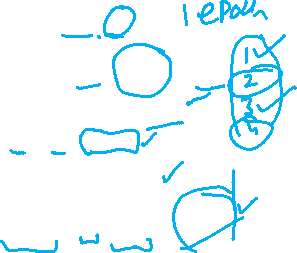 1 epoch
1
2
3
14